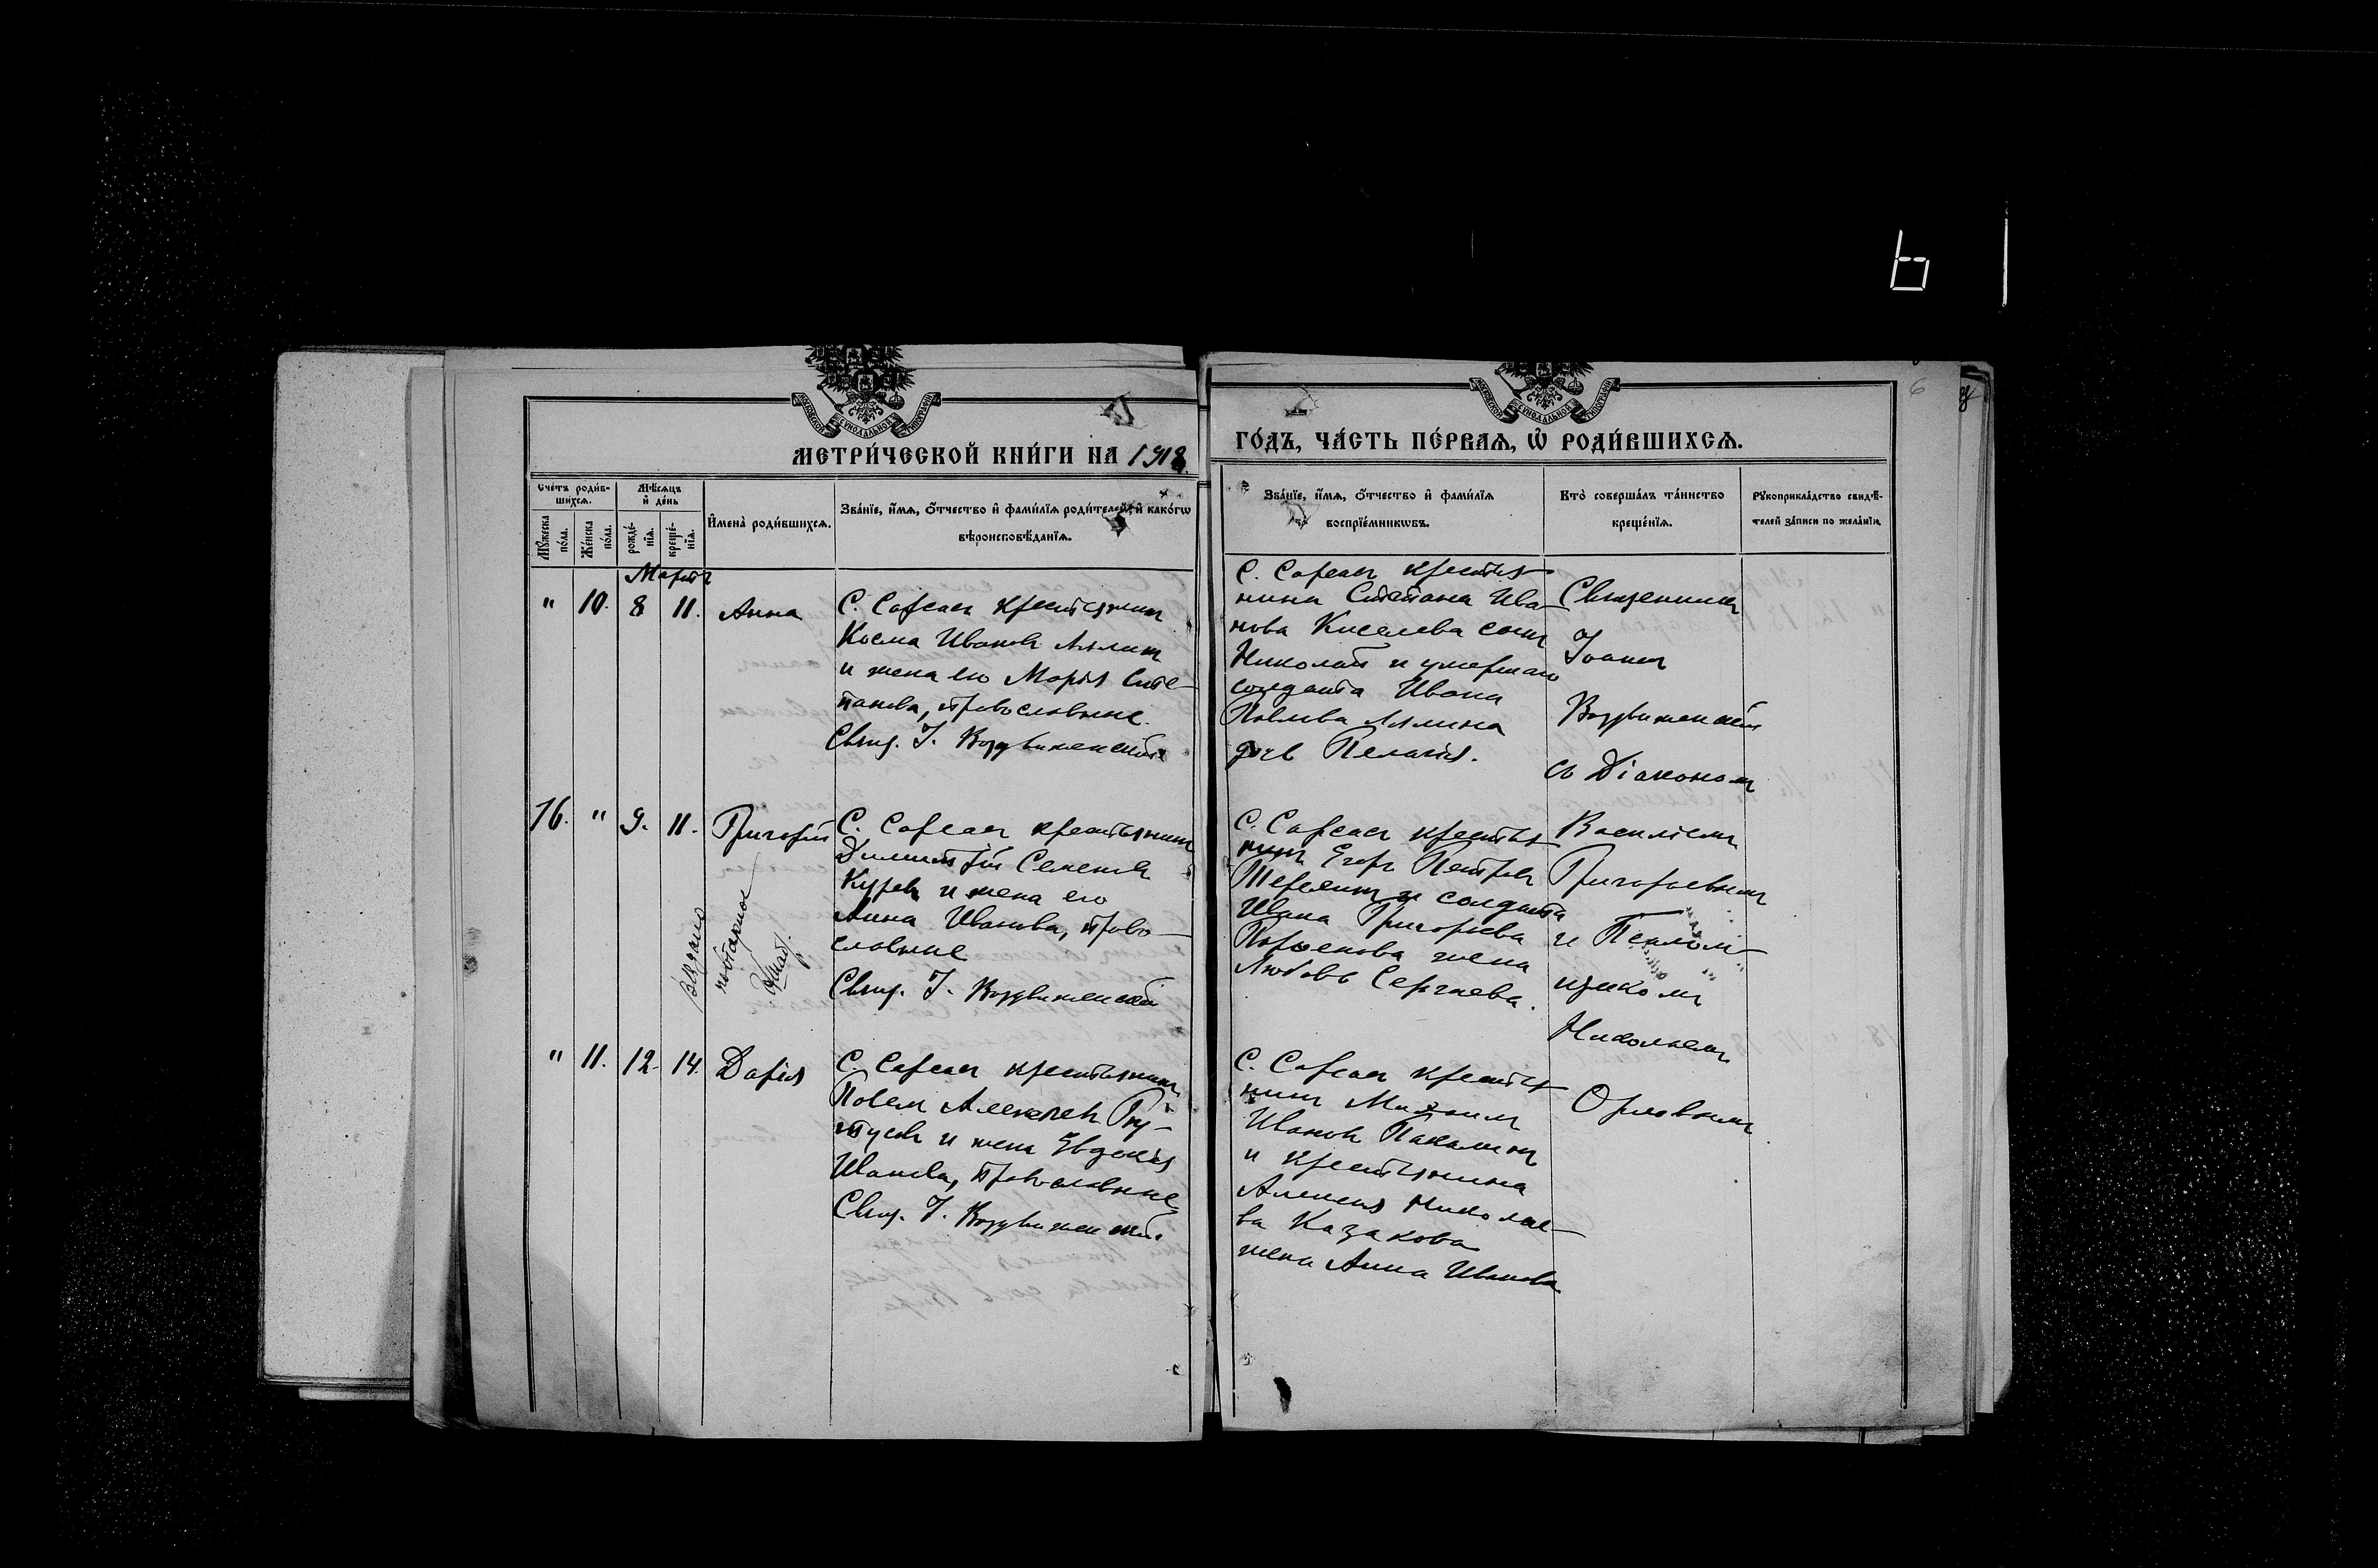 МЕТРИ́ЧЕСКОЙ КНИ́ГИ НА 1918
ГО́ДЪ, ЧА́СТЬ ПЕ́РВАѦ, Ѡ҆ РОДИ́ВШИХСѦ.
Сче́тъ роди́в-
шихсѧ.
Мѣ́сѧцъ
и҆ де́нь
Мꙋ́жеска по́ла.
Же́нска по́ла.
рожде́-
нїѧ.
креще́-
нїѧ.
И҆мена̀ роди́вшихсѧ.
Зва́нїе, и҆́мѧ, ѻ҆́тчество и҆ фами́лїѧ роди́телей, и҆ како́гѡ
вѣроисповѣ́данїѧ.
Зва́нїе, и҆́мѧ, ѻ҆́тчество и҆ фами́лїѧ
воспрїе́мникѡвъ.
Кто̀ соверша́лъ та́инство
креще́нїѧ.
Рꙋкоприкла́дство свидѣ́-
телей за́писи по жела́нїю.
6
Мартъ
" 10. 8 11. Анна
С. Сарсасъ крестьянинъ
Косма Ивановъ Лялинъ
и жена его Марія Сте-
панова, православные.
Свящ. І. Воздвиженскій
С. Сарсасъ крестья-
нина Степана Ива-
нова Киселева сынъ
Николай и умершаго
солдата Ивана
Павлова Лялина
дочь Пелагія.
Священникъ
Іоаннъ
Воздвиженскій
съ Діакономъ
Василіемъ
Григорьевымъ
и Псалом-
щикомъ
Николаемъ
Орловымъ.
16. " 9. 11. Григорій
С. Сарсасъ крестьянинъ
Димитрій Семеновъ
Куровъ и жена его
Анна Иванова, право-
славные
Свящ. І. Воздвиженскій
С. Сарсасъ крестья-
нинъ Егоръ Петровъ
и солдата
Ивана Григорьева
жена
Любовь Сергеева.
" 11. 12. 14. Дарія
С. Сарсасъ крестьянинъ
Павелъ Алексѣевъ
и жена Евдокія
Иванова, православные
Свящ. І. Воздвиженскій
С. Сарсасъ крестья-
нинъ Михаилъ
Ивановъ Пакалинъ
и крестьянина
Алексея Николае-
ва Казакова
жена Анна Иванова